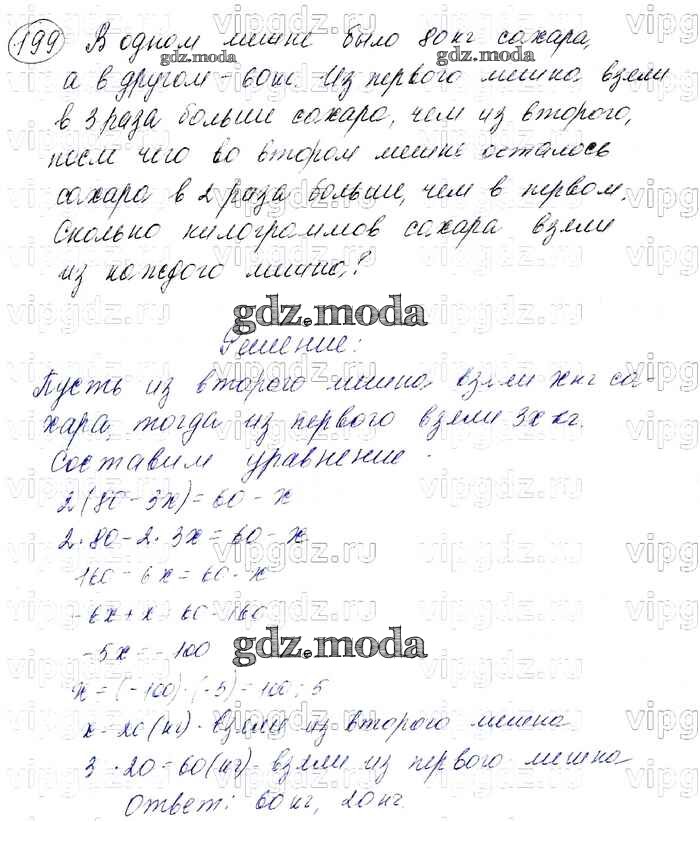 199 В одном мешке было 80 кг сахара,
а в другом - 60 кг. Из первого мешка взяли
в 3 раза больше сахара, чем из второго,
после чего во втором мешке осталось
сахара в 2 раза больше, чем в первом.
Сколько килограммов сахара взяли
из каждого мешка?
gdz.moda
Решение:
Пусть из второго мешка взяли x кг са-
хара, тогда из первого взяли 3x кг.
Составим уравнение
2(80 - 3x) = 60 - x
2·80 - 2·3x = 60 - x
160 - 6x = 60 - x
-6x + x = 60 - 160
-5x = -100
gdz.moda
x = (-100) : (-5) = 100 : 5
x = 20 (кг) - взяли из второго мешка
3 · 20 = 60 (кг) - взяли из первого мешка
Ответ: 60 кг, 20 кг.